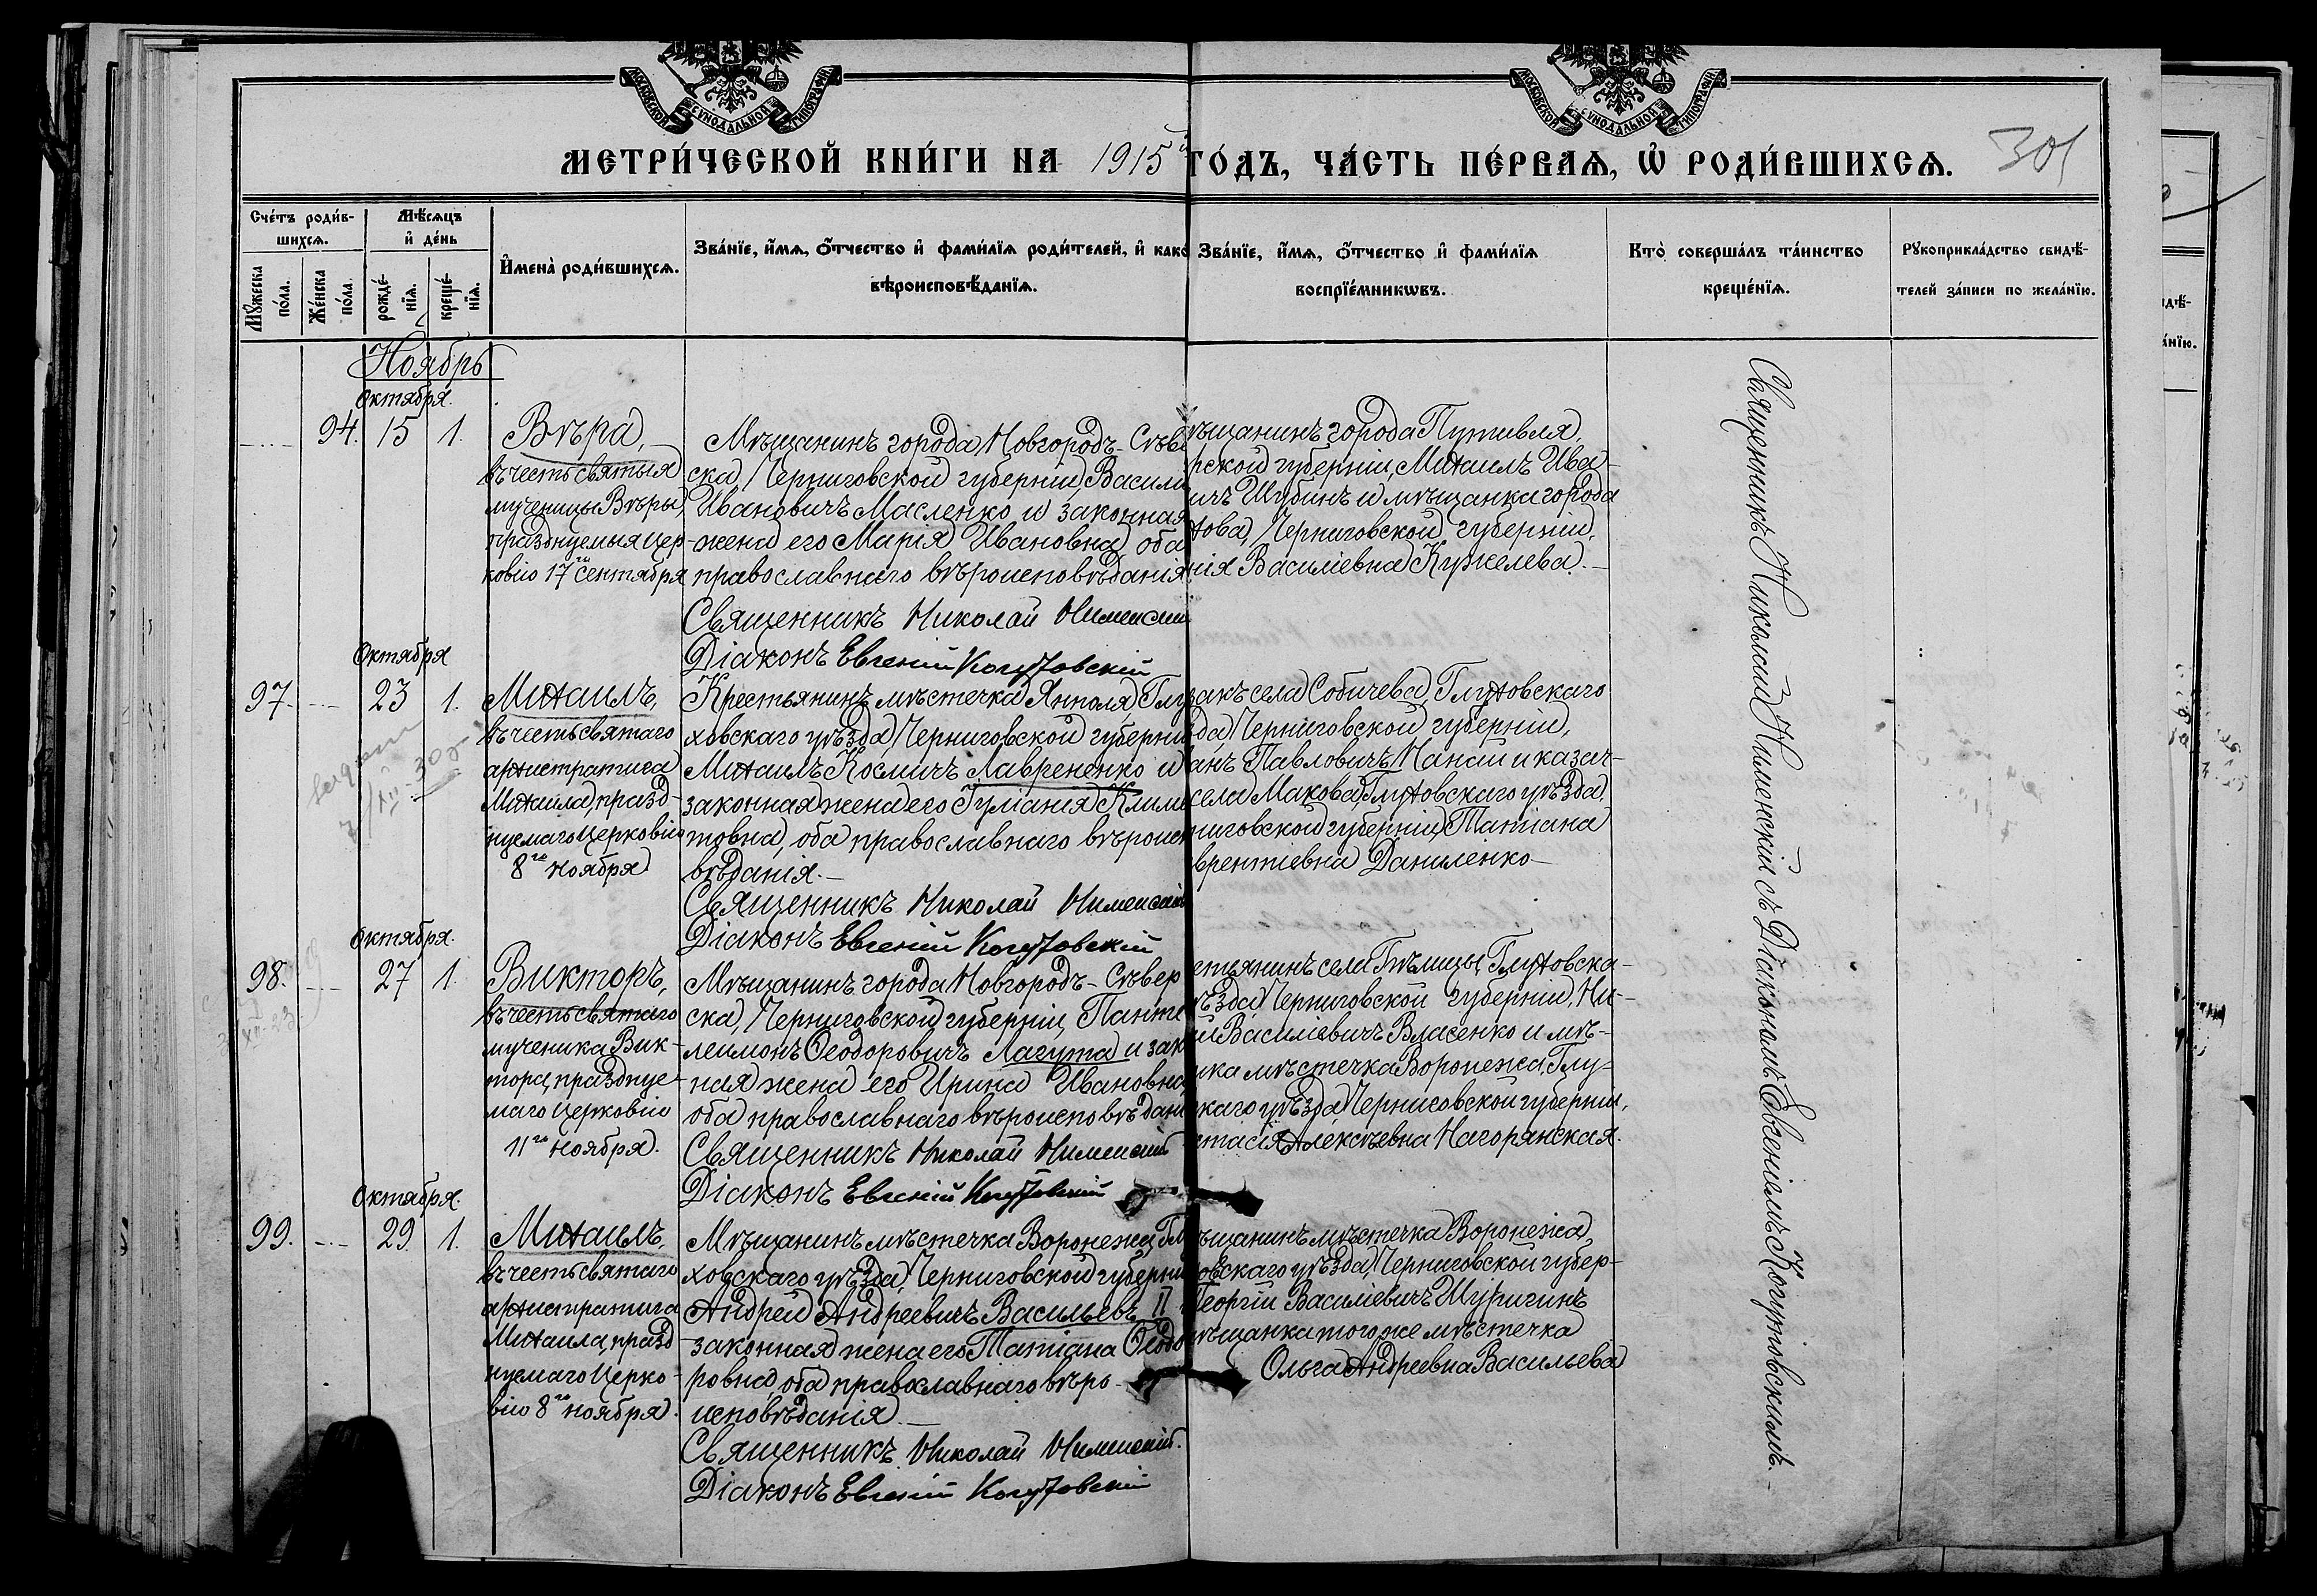 МОСКОВСКОЙ СѴНОДАЛЬНОЙ ТИПОГРАФІИ
МОСКОВСКОЙ СѴНОДАЛЬНОЙ ТИПОГРАФІИ
МЕТРИ́ЧЕСКОЙ КНИ́ГИ НА 1915й ГО́ДЪ, ЧА́СТЬ ПЕ́РВАѦ, Ѡ҆ РОДИ́ВШИХСѦ. 301
Сче́тъ роди́в-
шихсѧ.
Мꙋжеска по́ла.
Же́нска по́ла.
Мѣ́сѧцъ
и҆ де́нь
рожде́-нїѧ.
креще́-нїѧ.
И҆мена̀ роди́вшихсѧ.
Зва́нїе, и҆́мѧ, ѻ҆́тчество и҆ фами́лїѧ роди́телей, и҆ како
вѣроисповѣ́данїѧ.
Зва́нїе, и҆́мѧ, ѻ҆́тчество и҆ фами́лїѧ
воспрїе́мникѡвъ.
Кто̀ соверша́лъ та́инство
креще́нїѧ.
Рꙋкоприкла́дство свидѣ́-
телей за́писи по жела́нїю.
Ноябрь
Октября.
94. 15 1.
Вѣра,
въ честь святыя
мученицы Вѣры,
празднуемыя Цер-
ковію 17го сентября
Мѣщанинъ города Новгородъ-Сѣве
ска, Черниговской губерніи, Васили
Ивановичъ Масленко и законная
жена его Марія Ивановна, оба
православнаго вѣроисповѣданія
Священникъ Николай Нименскій
Діаконъ Евгеній Когутовскій
ѣщанинъ города Путивля,
рской губерніи, Михаилъ Ива-
ичъ Шубинъ и мѣщанка города
хова, Черниговской губерніи,
нія Василіевна Кужелева.
Октября
97. 23 1.
Михаилъ,
въ честь святаго
архистратига
Михаила, празд-
нуемаго Церковію
8го ноября
Крестьянинъ мѣстечка Янполя, Глу
ховскаго уѣзда, Черниговской губерніи
Михаилъ Космичъ Лаврененко и
законная жена его Іуліанія Клими
товна, оба православнаго вѣроиспо
вѣданія.
Священникъ Николай Нименскій
Діаконъ Евгеній Когутовскій
закъ села Собичева, Глуховскаго
зда, Черниговской губерніи,
анъ Павловичъ Пансии и казач-
села Макова, Глуховскаго уѣзда,
ниговской губерніи, Татіана
врентіевна Даниленко
Октября.
98. 27 1.
Викторъ,
въ честь святаго
мученика Вик-
тора, празднуе-
маго Церковію
11го ноября.
Мѣщанинъ города Новгородъ-Сѣвер
ска, Черниговской губерніи, Панте
леимонъ Ѳеодоровичъ Лагута и зак
ная жена его Ирина Ивановна
оба православнаго вѣроисповѣдані
Священникъ Николай Нименскій
Діаконъ Евгеній Когутовскій
стьянинъ села Бѣлицы, Глуховска-
ѣзда, Черниговской губерніи, Ни-
й Василіевичъ Власенко и мѣ-
нка мѣстечка Воронежа, Глу-
скаго уѣзда Черниговской губерніи,
стасія Алексѣевна Нагорянская.
Октября.
99. 29 1.
Михаилъ,
въ честь святаго
архистратига
Михаила, празд
нуемаго Церко-
вію 8го ноября.
Мѣщанинъ мѣстечка Воронежа, Глу
ховскаго уѣзда, Черниговской губерніи
Андрей Андреевичъ Васильевъ II
законная жена его Татіана Ѳеодо
ровна, оба православнаго вѣро-
исповѣданія.
Священникъ Николай Нименскій.
Діаконъ Евгеній Когутовскій
ѣщанинъ мѣстечка Воронежа,
овскаго уѣзда, Черниговской губер-
Георгій Василіевичъ Шуригинъ
мѣщанка того же мѣстечка
Ольга Андреевна Васильева
Священникъ Николай Нименскій съ Діакономъ Евгеніемъ Когутовскимъ.